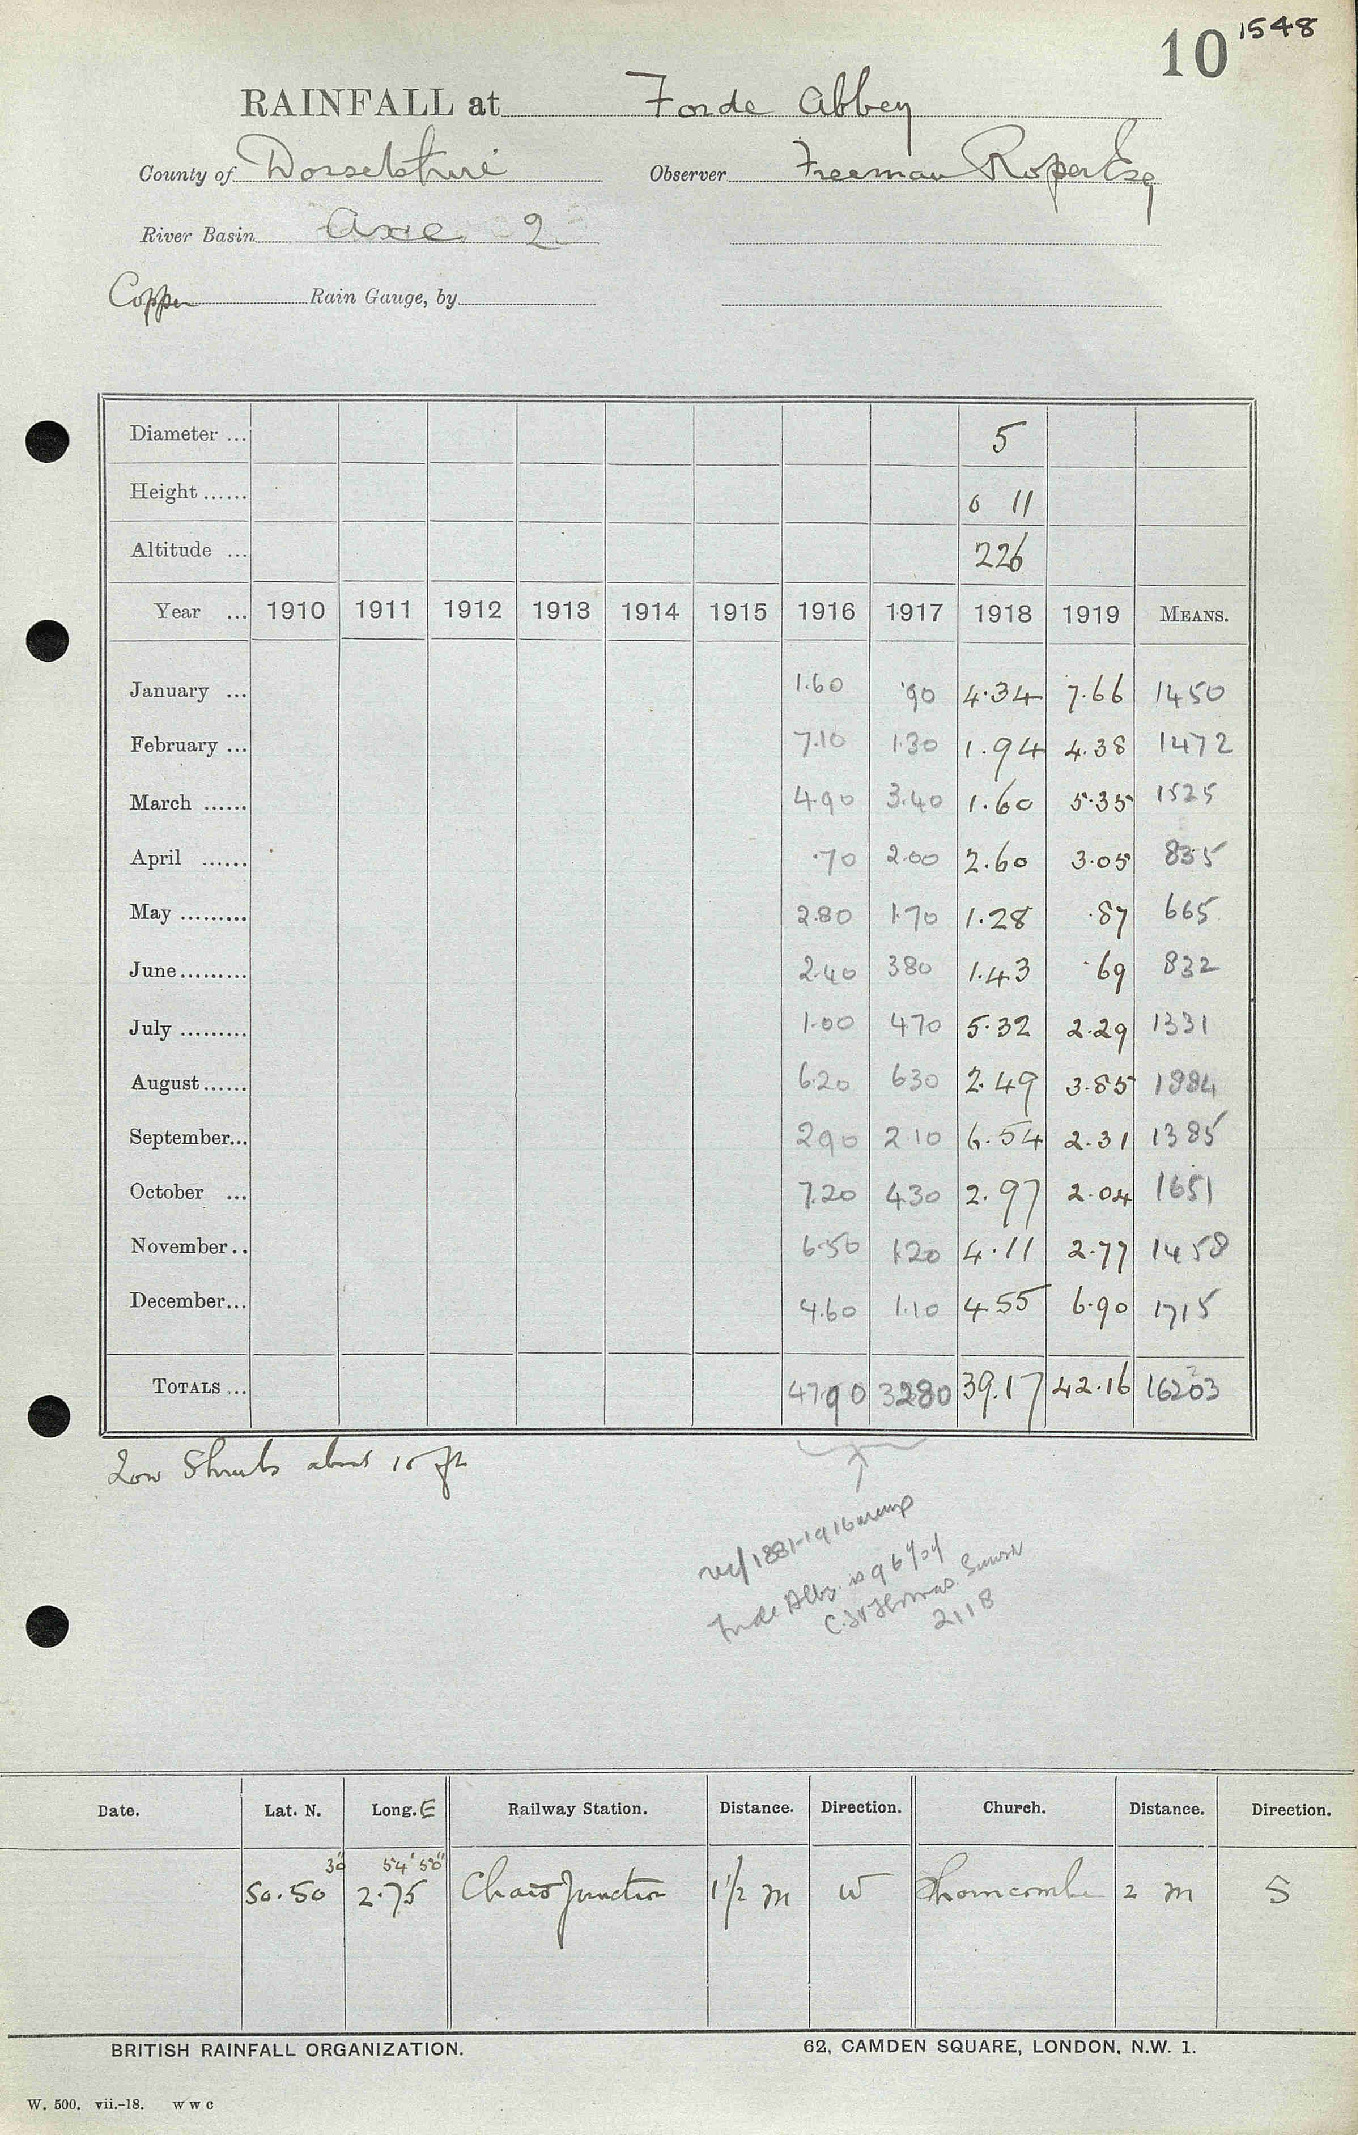 10 1548
RAINFALL at Forde Abbey
County of Dorsetshire Observer Freeman Roper Esq
River Basin Axe 2
Copper Rain Gauge, by
Diameter ... 5
Height ...... 0 11
Altitude ... 226
Year ... 1910 1911 1912 1913 1914 1915 1916 1917 1918 1919 MEANS.
January ... 1.60 .90 4.34 7.66 1450
February ... 7.10 1.30 1.94 4.38 1472
March ...... 4.90 3.40 1.60 5.35 1525
April ...... .70 2.00 2.60 3.05 835
May ......... 2.80 1.70 1.28 .87 665
June ......... 2.40 380 1.43 .69 832
July ......... 1.00 470 5.32 2.29 1331
August ...... 6.20 630 2.49 3.85 1884
September... 290 210 6.54 2.31 1385
October ... 7.20 430 2.97 2.04 1651
November .. 6.50 1.20 4.11 2.77 1458
December... 4.60 1.10 4.55 6.90 1715
TOTALS ... 4790 3280 39.17 42.16 16203
Low Shrubs about 10 ft
1881-1916
Forde Abby is 96% of
C. St Thomas
2118
Date. Lat. N. Long. E Railway Station. Distance. Direction. Church. Distance. Direction.
30" 54' 50"
50.50 2.75 Chard Junction 1 1/2 m W Thorncombe 2 m S
BRITISH RAINFALL ORGANIZATION. 62, CAMDEN SQUARE, LONDON, N.W. 1.
W. 500. vii.-18. w w c